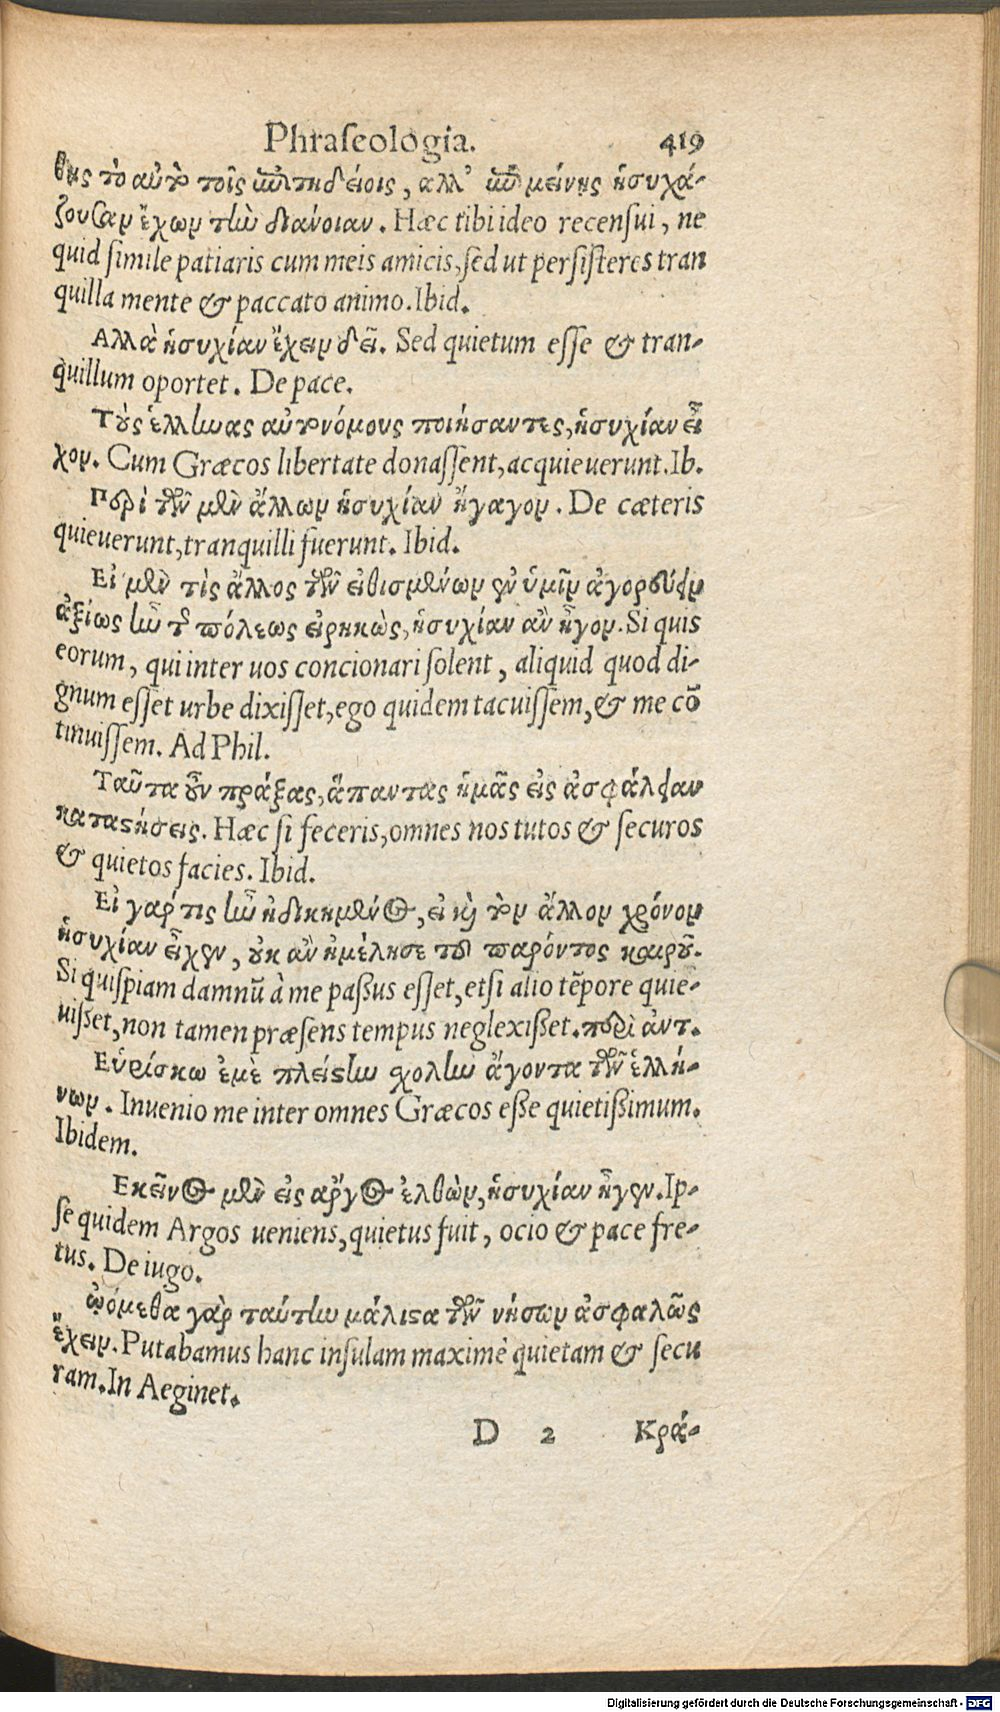 Phraseologia. 419
θῃς τὸ αὐτὸ τοῖς ἐπιτηδείοις, αλλ' ἐπιμείνῃς ἡσυχά-
ζουσαν ἔχων τὴν διάνοιαν. Hæc tibi ideo recensui, ne
quid simile patiaris cum meis amicis, sed ut persisteres tran
quilla mente & paccato animo. Ibid.
Αλλὰ ἡσυχίαν ἔχειν δεῖ. Sed quietum esse & tran-
quillum oportet. De pace.
Τοὺς ἑλληνας αὐτονόμους ποιήσαντες, ἡσυχίαν εἶ
χον. Cum Græcos libertate donassent, acquieuerunt. Ib.
Περὶ τῶν μὲν ἄλλων ἡσυχίαν ἤγαγον. De cæteris
quieuerunt, tranquilli fuerunt. Ibid.
Εἰ μὲν τὶς ἄλλος τῶν εἰθισμένων ἐν ὑμῖν ἀγορεύειν
ἀξίως ἦν τῆς πόλεως εἰρηκὼς, ἡσυχίαν ἂν ἦγον. Si quis
eorum, qui inter uos concionari solent, aliquid quod di-
gnum esset urbe dixisset, ego quidem tacuissem, & me cō
tinuissem. Ad Phil.
Ταῦτα οὖν πράξας, ἅπαντας ἡμᾶς εἰς ἀσφάλειαν
καταστήσεις. Hæc si feceris, omnes nos tutos & securos
& quietos facies. Ibid.
Εἰ γαρ τις ἦν ἠδικημένος, εἰ καὶ τὸν ἄλλον χρόνον
ἡσυχίαν εἶχεν, οὐκ ἂν ἠμέλησε τοῦ παρόντος καιροῦ.
Si quispiam damnū à me passus esset, etsi alio tēpore quie-
uisset, non tamen præsens tempus neglexisset. περὶ ἀντ.
Εὑρίσκω ἐμὲ πλείστην σχολὴν ἄγοντα τῶν ἑλλή-
νων. Inuenio me inter omnes Græcos esse quietissimum.
Ibidem.
Εκεῖνος μὲν εἰς αργος ἐλθὼν, ἡσυχίαν ἦγεν. Ip-
se quidem Argos ueniens, quietus fuit, ocio & pace fre-
tus. De iugo.
ᾠόμεθα γὰρ ταύτην μάλιστα τῶν νήσων ἀσφαλῶς
ἔχειν. Putabamus hanc insulam maximè quietam & secu
ram. In Aeginet.
D 2 Κρά-
Digitalisierung gefördert durch die Deutsche Forschungsgemeinschaft - DFG